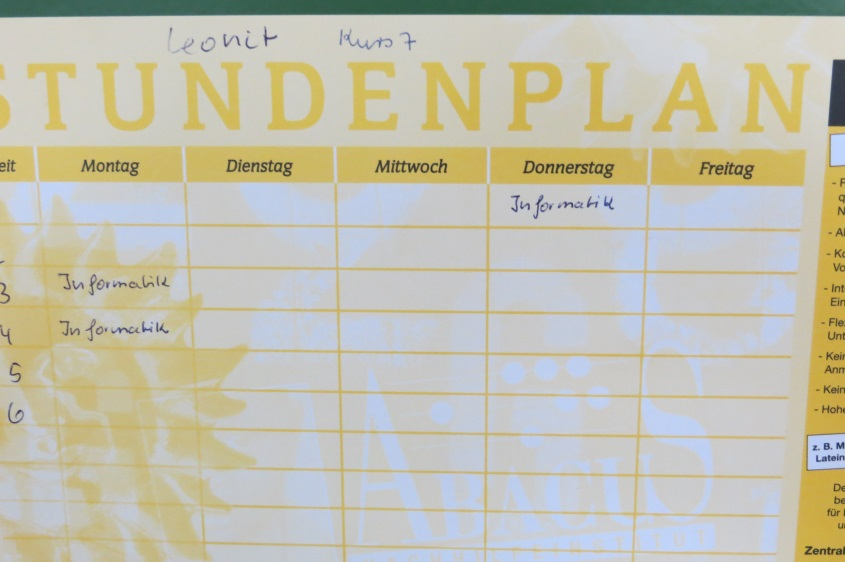 Leonit Kurs 7
STUNDENPLAN
eit Montag Dienstag Mittwoch Donnerstag Freitag
Informatik
3 Informatik
4 Informatik
5
6
ABACUS
- F
q
N
- Al
- Ko
Vo
- Int
Ein
- Fle
Unt
- Kei
Anm
- Kein
- Hohe
z. B. M
Latein
De
be
für
u
Zentral